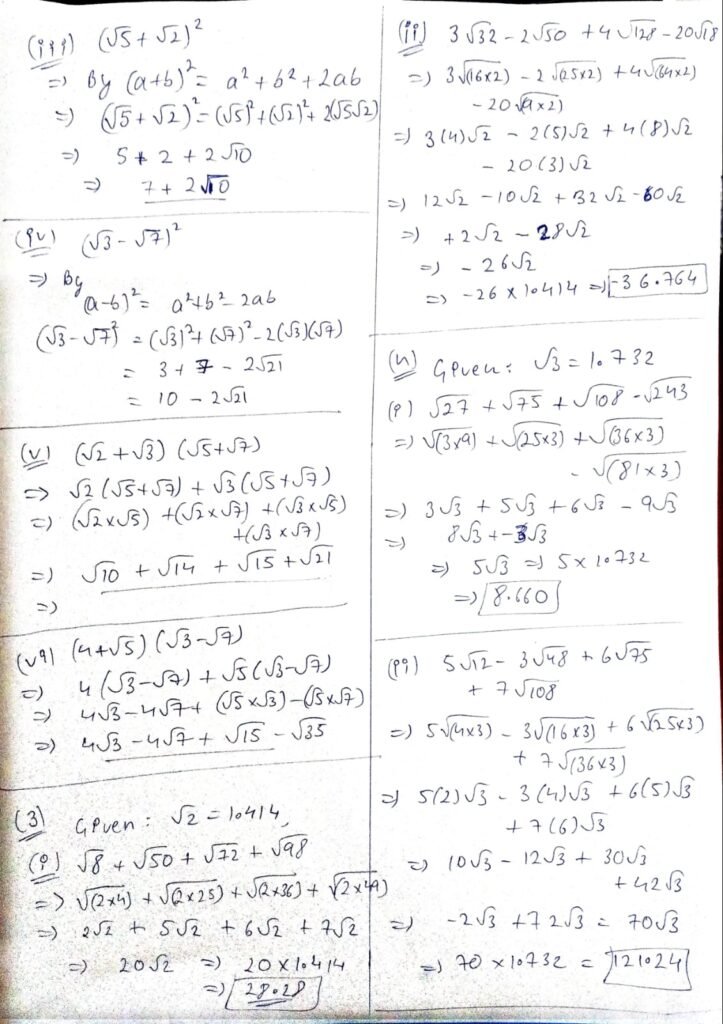 (iii) (√5 + √2)²
=> By (a+b)² = a² + b² + 2ab
=> (√5 + √2)² = (√5)² + (√2)² + 2(√5√2)
=> 5 + 2 + 2√10
=> 7 + 2√10
(iv) (√3 - √7)²
=> By
(a-b)² = a²+b² - 2ab
(√3 - √7)² = (√3)² + (√7)² - 2(√3)(√7)
= 3 + 7 - 2√21
= 10 - 2√21
(v) (√2 + √3) (√5+√7)
=> √2 (√5+√7) + √3 (√5+√7)
=> (√2×√5) + (√2×√7) + (√3×√5)
+ (√3×√7)
=> √10 + √14 + √15 + √21
=>
(vi) (4+√5) (√3-√7)
=> 4 (√3-√7) + √5 (√3-√7)
=> 4√3 - 4√7 + (√5×√3) - (√5×√7)
=> 4√3 - 4√7 + √15 - √35
(3) Given : √2 = 1.414,
(i) √8 + √50 + √72 + √98
=> √(2×4) + √(2×25) + √(2×36) + √(2×49)
=> 2√2 + 5√2 + 6√2 + 7√2
=> 20√2 => 20×1.414
=> 28.28
(ii) 3√32 - 2√50 + 4√128 - 20√18
=> 3√(16×2) - 2√(25×2) + 4√(64×2)
- 20√(9×2)
=> 3(4)√2 - 2(5)√2 + 4(8)√2
- 20(3)√2
=> 12√2 - 10√2 + 32√2 - 60√2
=> +2√2 - 28√2
=> - 26√2
=> -26 × 1.414 => -36.764
(4) Given : √3 = 1.732
(i) √27 + √75 + √108 - √243
=> √(3×9) + √(25×3) + √(36×3)
- √(81×3)
=> 3√3 + 5√3 + 6√3 - 9√3
=> 8√3 + -3√3
=> 5√3 => 5×1.732
=> 8.660
(ii) 5√12 - 3√48 + 6√75
+ 7√108
=> 5√(4×3) - 3√(16×3) + 6√(25×3)
+ 7√(36×3)
=> 5(2)√3 - 3(4)√3 + 6(5)√3
+ 7(6)√3
=> 10√3 - 12√3 + 30√3
+ 42√3
=> -2√3 + 72√3 = 70√3
=> 70 × 1.732 = 121.24